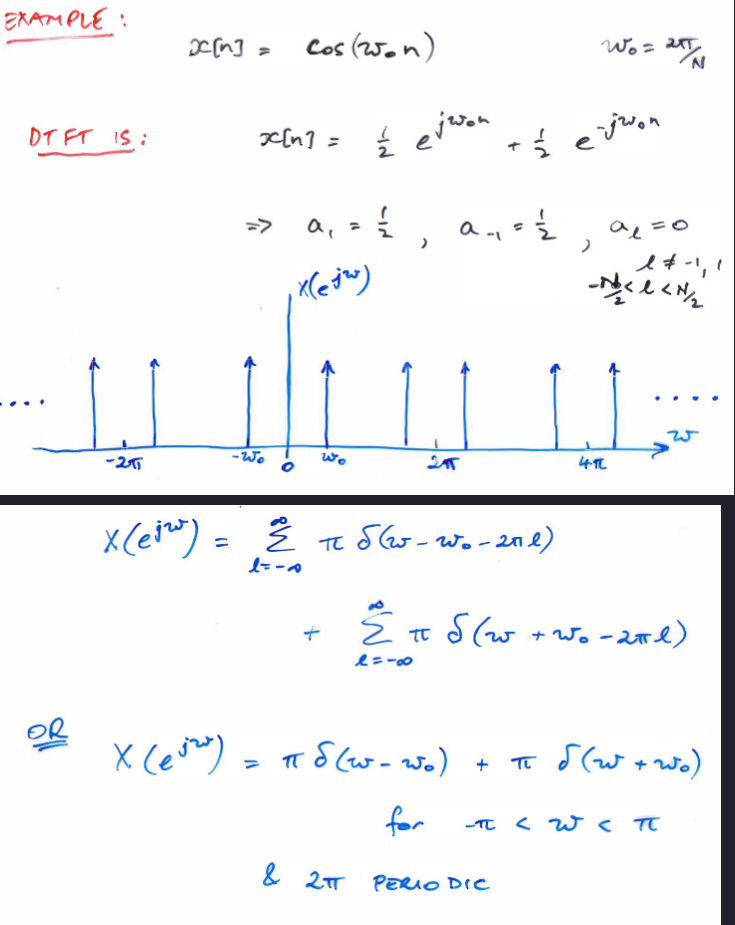 EXAMPLE:
x[n] = cos(ω₀n)    ω₀ = 2π/N
DTFT IS:    x[n] = 1/2 e^{jω₀n} + 1/2 e^{-jω₀n}
=> a₁ = 1/2 , a₋₁ = 1/2 , a_l = 0
l ≠ -1, 1
-N/2 < l < N/2
X(e^{jω})
.... ....
-2π -ω₀ 0 ω₀ 2π 4π ω
X(e^{jω}) = ∑_{l=-∞}^{∞} π δ(ω - ω₀ - 2πl)
+ ∑_{l=-∞}^{∞} π δ(ω + ω₀ - 2πl)
OR    X(e^{jω}) = π δ(ω - ω₀) + π δ(ω + ω₀)
for -π < ω < π
& 2π PERIODIC